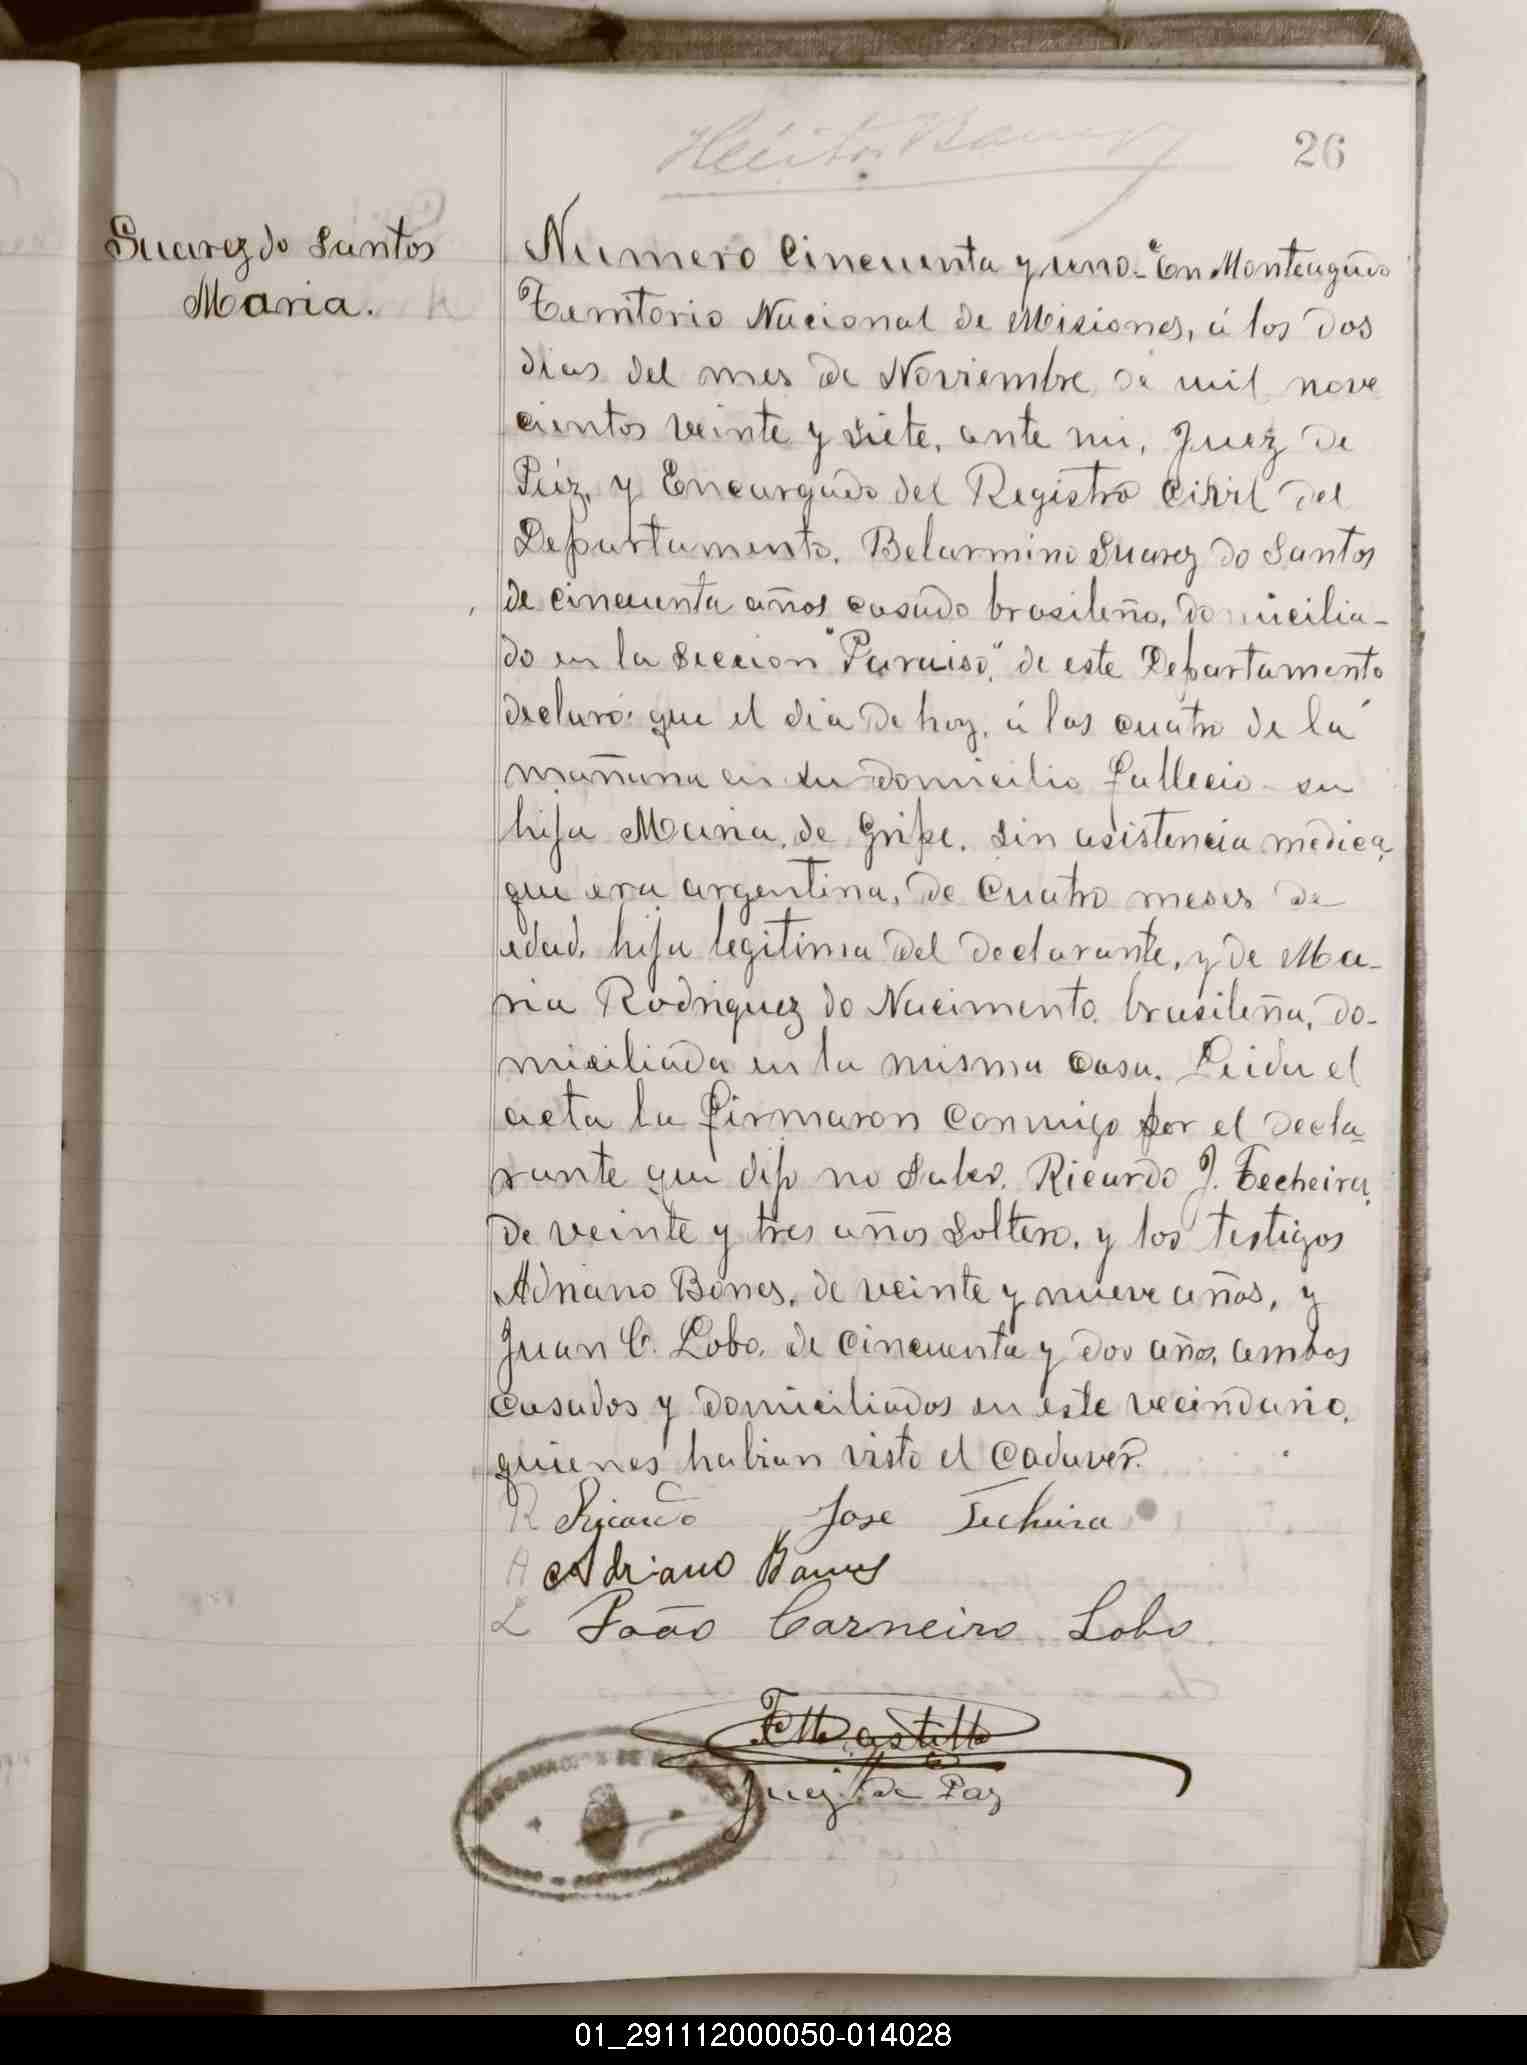 26
Suarez do Santos
Maria.
Numero Cincuenta y uno. En Monteagudo
Territorio Nacional de Misiones, á los dos
dias del mes de Noviembre de mil nove
cientos veinte y siete, ante mi, Juez de
Páz, y Encargado del Registro Civil del
Departamento, Belarmino Suarez do Santos
de cincuenta años casado brasileño, domicilia-
do en la seccion "Paraiso," de este Departamento
declaró: que el dia de hoy, á las cuatro de la
mañana en su domicilio fallecio su
hija Maria, de gripe, sin asistencia medica,
que era argentina, de cuatro meses de
edad, hija legitima del declarante, y de Ma-
ria Rodriguez do Nacimento, brasileña, do-
miciliada en la misma casa. Leida el
acta la firmaron conmigo por el decla-
rante que dijo no saber, Ricardo J. Techeira,
de veinte y tres años soltero, y los testigos
Adriano Bones, de veinte y nueve años, y
Juan C. Lobo, de cincuenta y dos años, ambos
casados y domiciliados en este vecindario,
quienes habian visto el cadaver.
R Ricardo Jose Techeira
A Adriano
L João Carneiro Lobo
Castillo
Juez de Paz
01_291112000050-014028